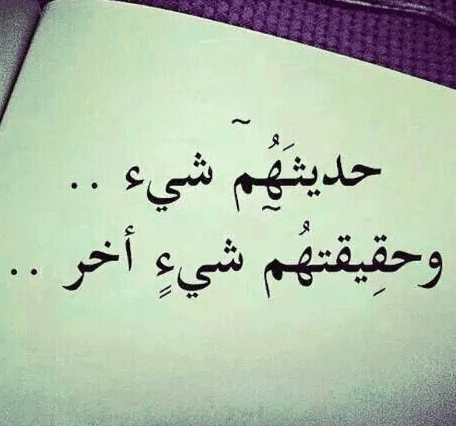 حديثـَهُم̃ شيء ..
وحقِيقتهُم̃ شيءٍ أخر ..